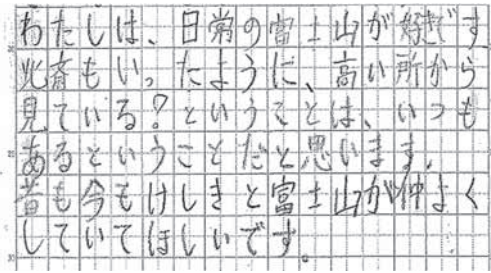 わたしは、日常の富士山が好きです
北斎もいったように、高い所から
見ている？ということは、いつも
あるということだと思います。
昔も今もけしきと富士山が仲よく
していてほしいです。